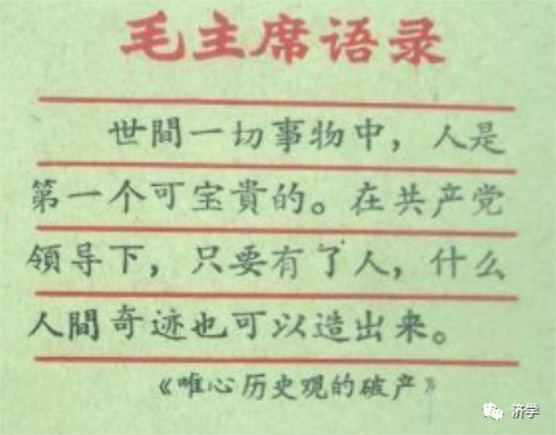 毛主席语录
世間一切事物中，人是
第一个可宝貴的。在共产党
領导下，只要有了人，什么
人間奇迹也可以造出来。
《唯心历史观的破产》
济学